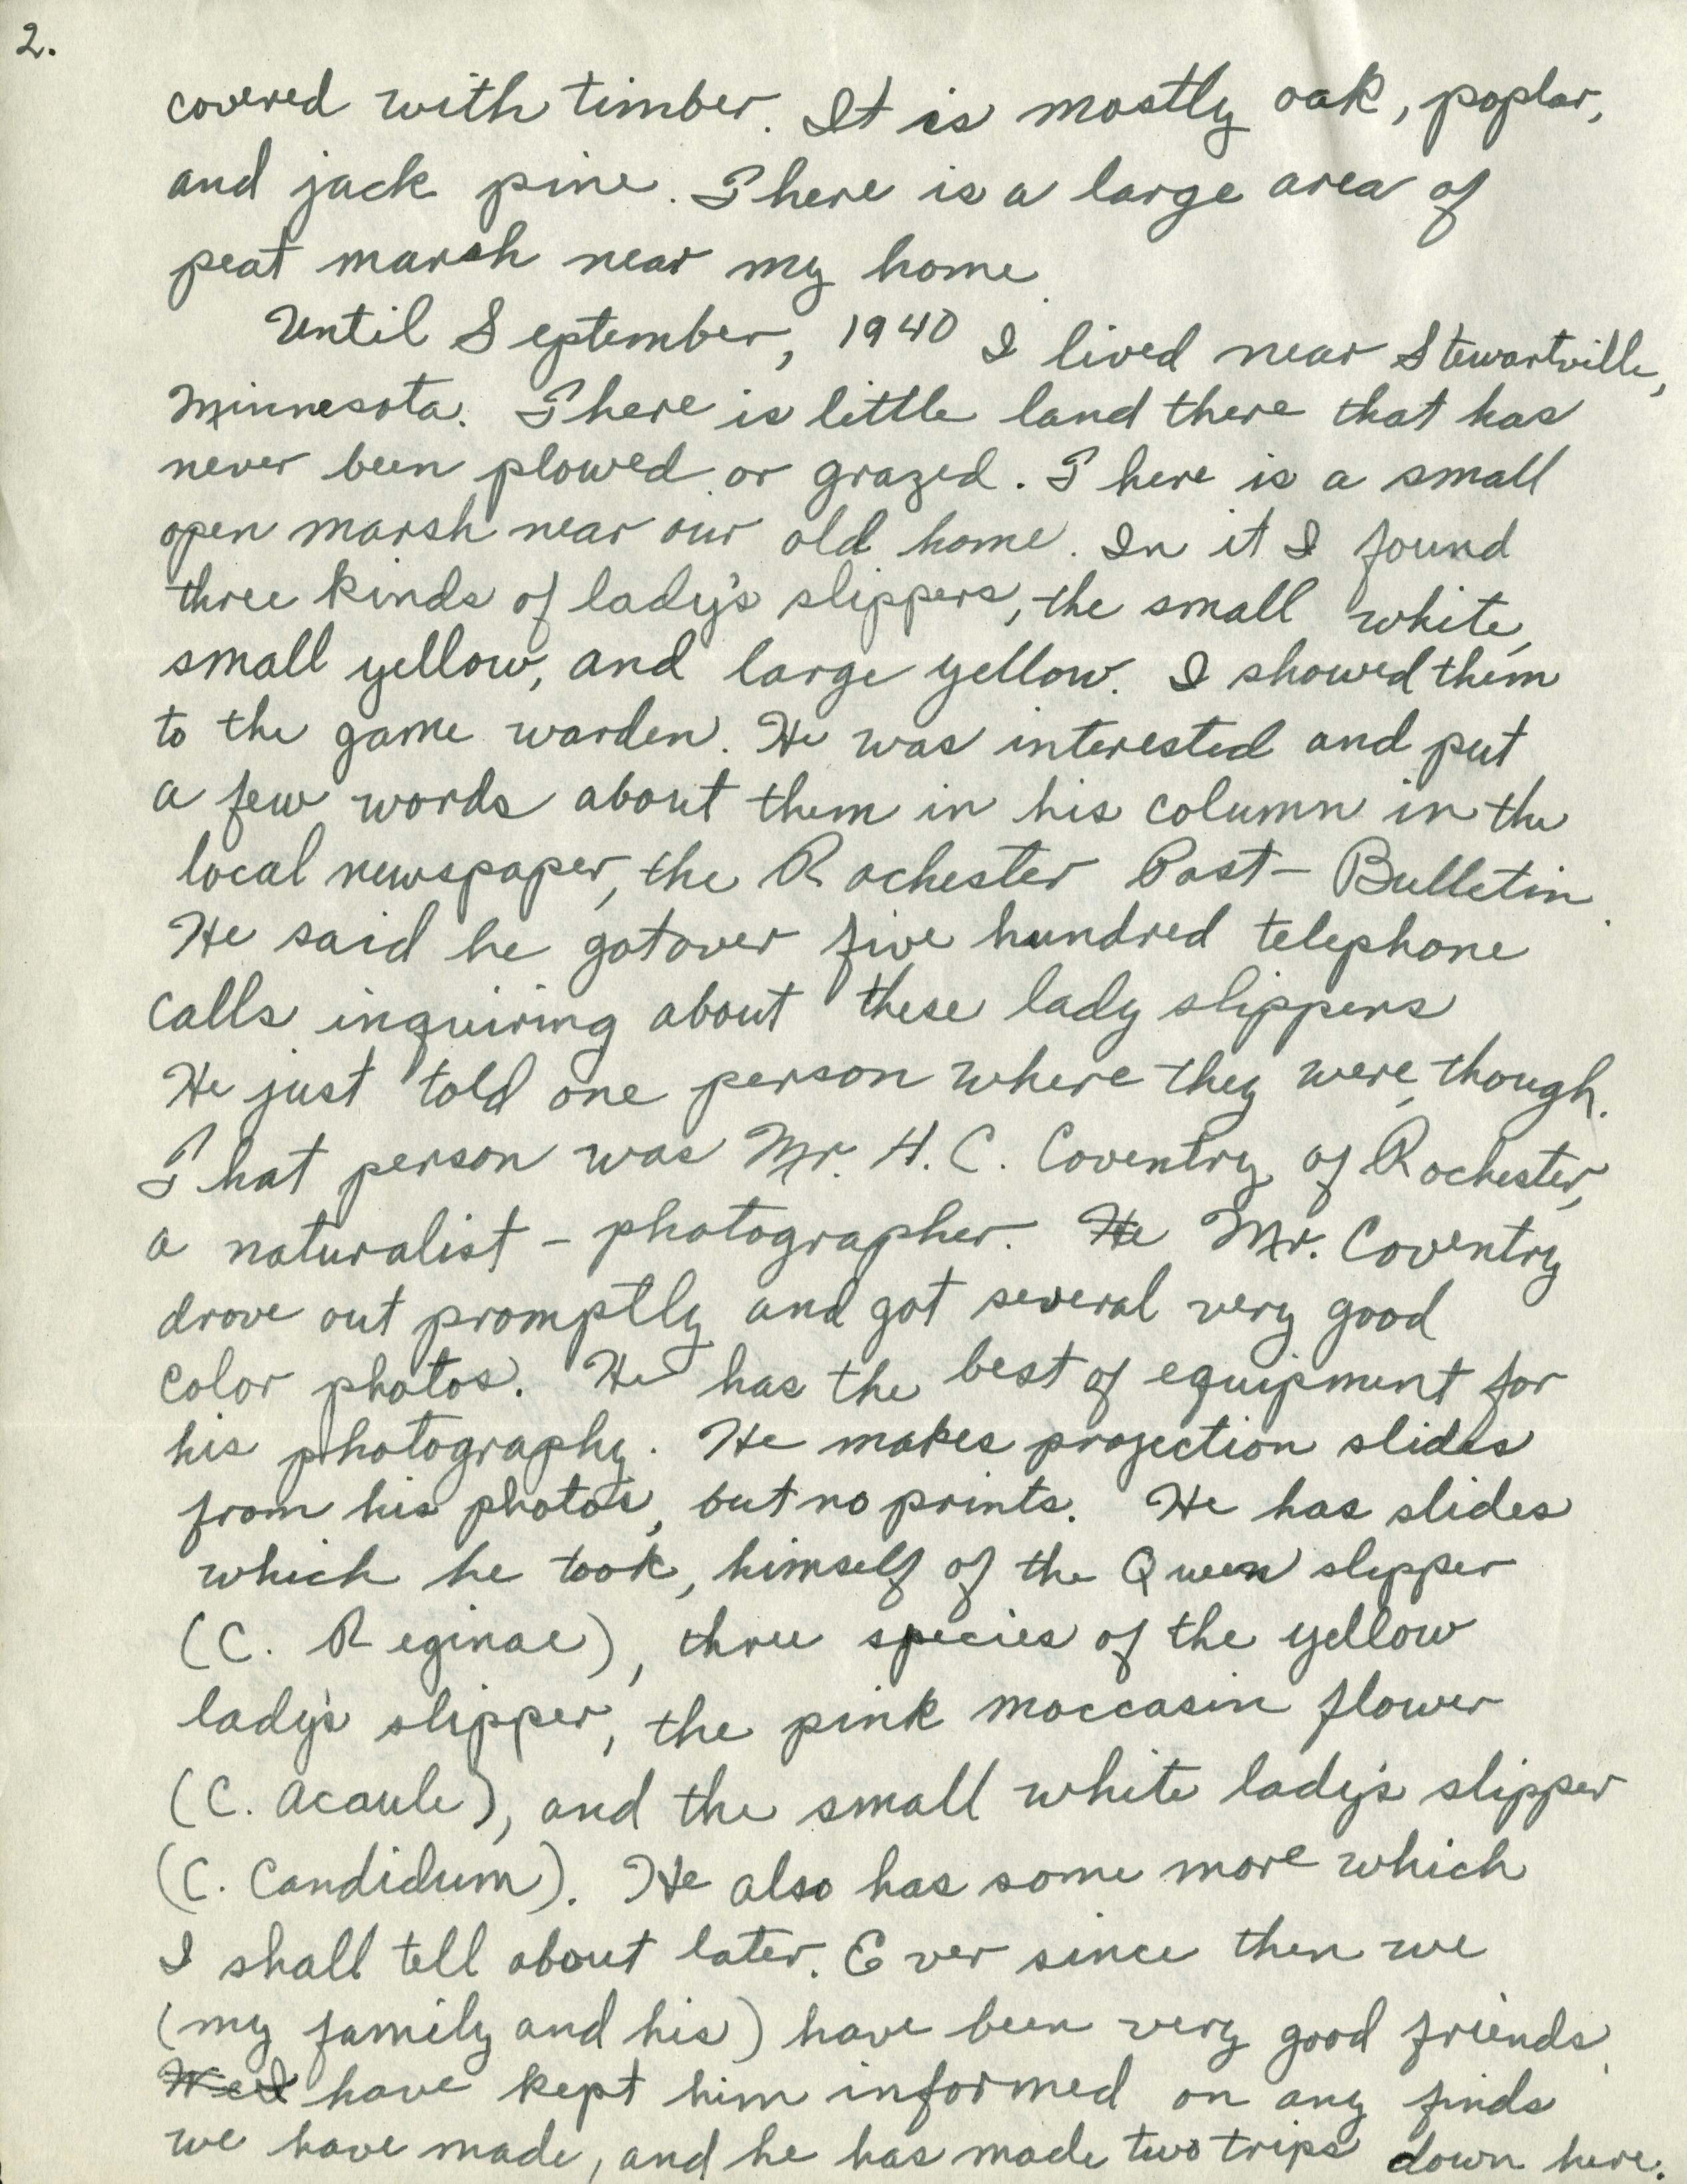 2.
covered with timber. It is mostly oak, poplar,
and jack pine. There is a large area of
peat marsh near my home.
Until September, 1940 I lived near Stewartville,
Minnesota. There is little land there that has
never been plowed or grazed. There is a small
open marsh near our old home. In it I found
three kinds of lady's slippers, the small white,
small yellow, and large yellow. I showed them
to the game warden. He was interested and put
a few words about them in his column in the
local newspaper, the Rochester Post-Bulletin.
He said he got over five hundred telephone
calls inquiring about these lady slippers
He just told one person where they were, though.
That person was Mr. H. C. Coventry of Rochester,
a naturalist - photographer. He Mr. Coventry
drove out promptly and got several very good
color photos. He has the best of equipment for
his photography. He makes projection slides
from his photos, but no prints. He has slides
which he took, himself of the Queen slipper
(C. Reginae), three species of the yellow
lady's slipper, the pink moccasin flower
(C. Acaule), and the small white lady's slipper
(C. Candidum). He also has some more which
I shall tell about later. Ever since then we
(my family and his) have been very good friends.
have kept him informed on any finds
we have made, and he has made two trips down here.